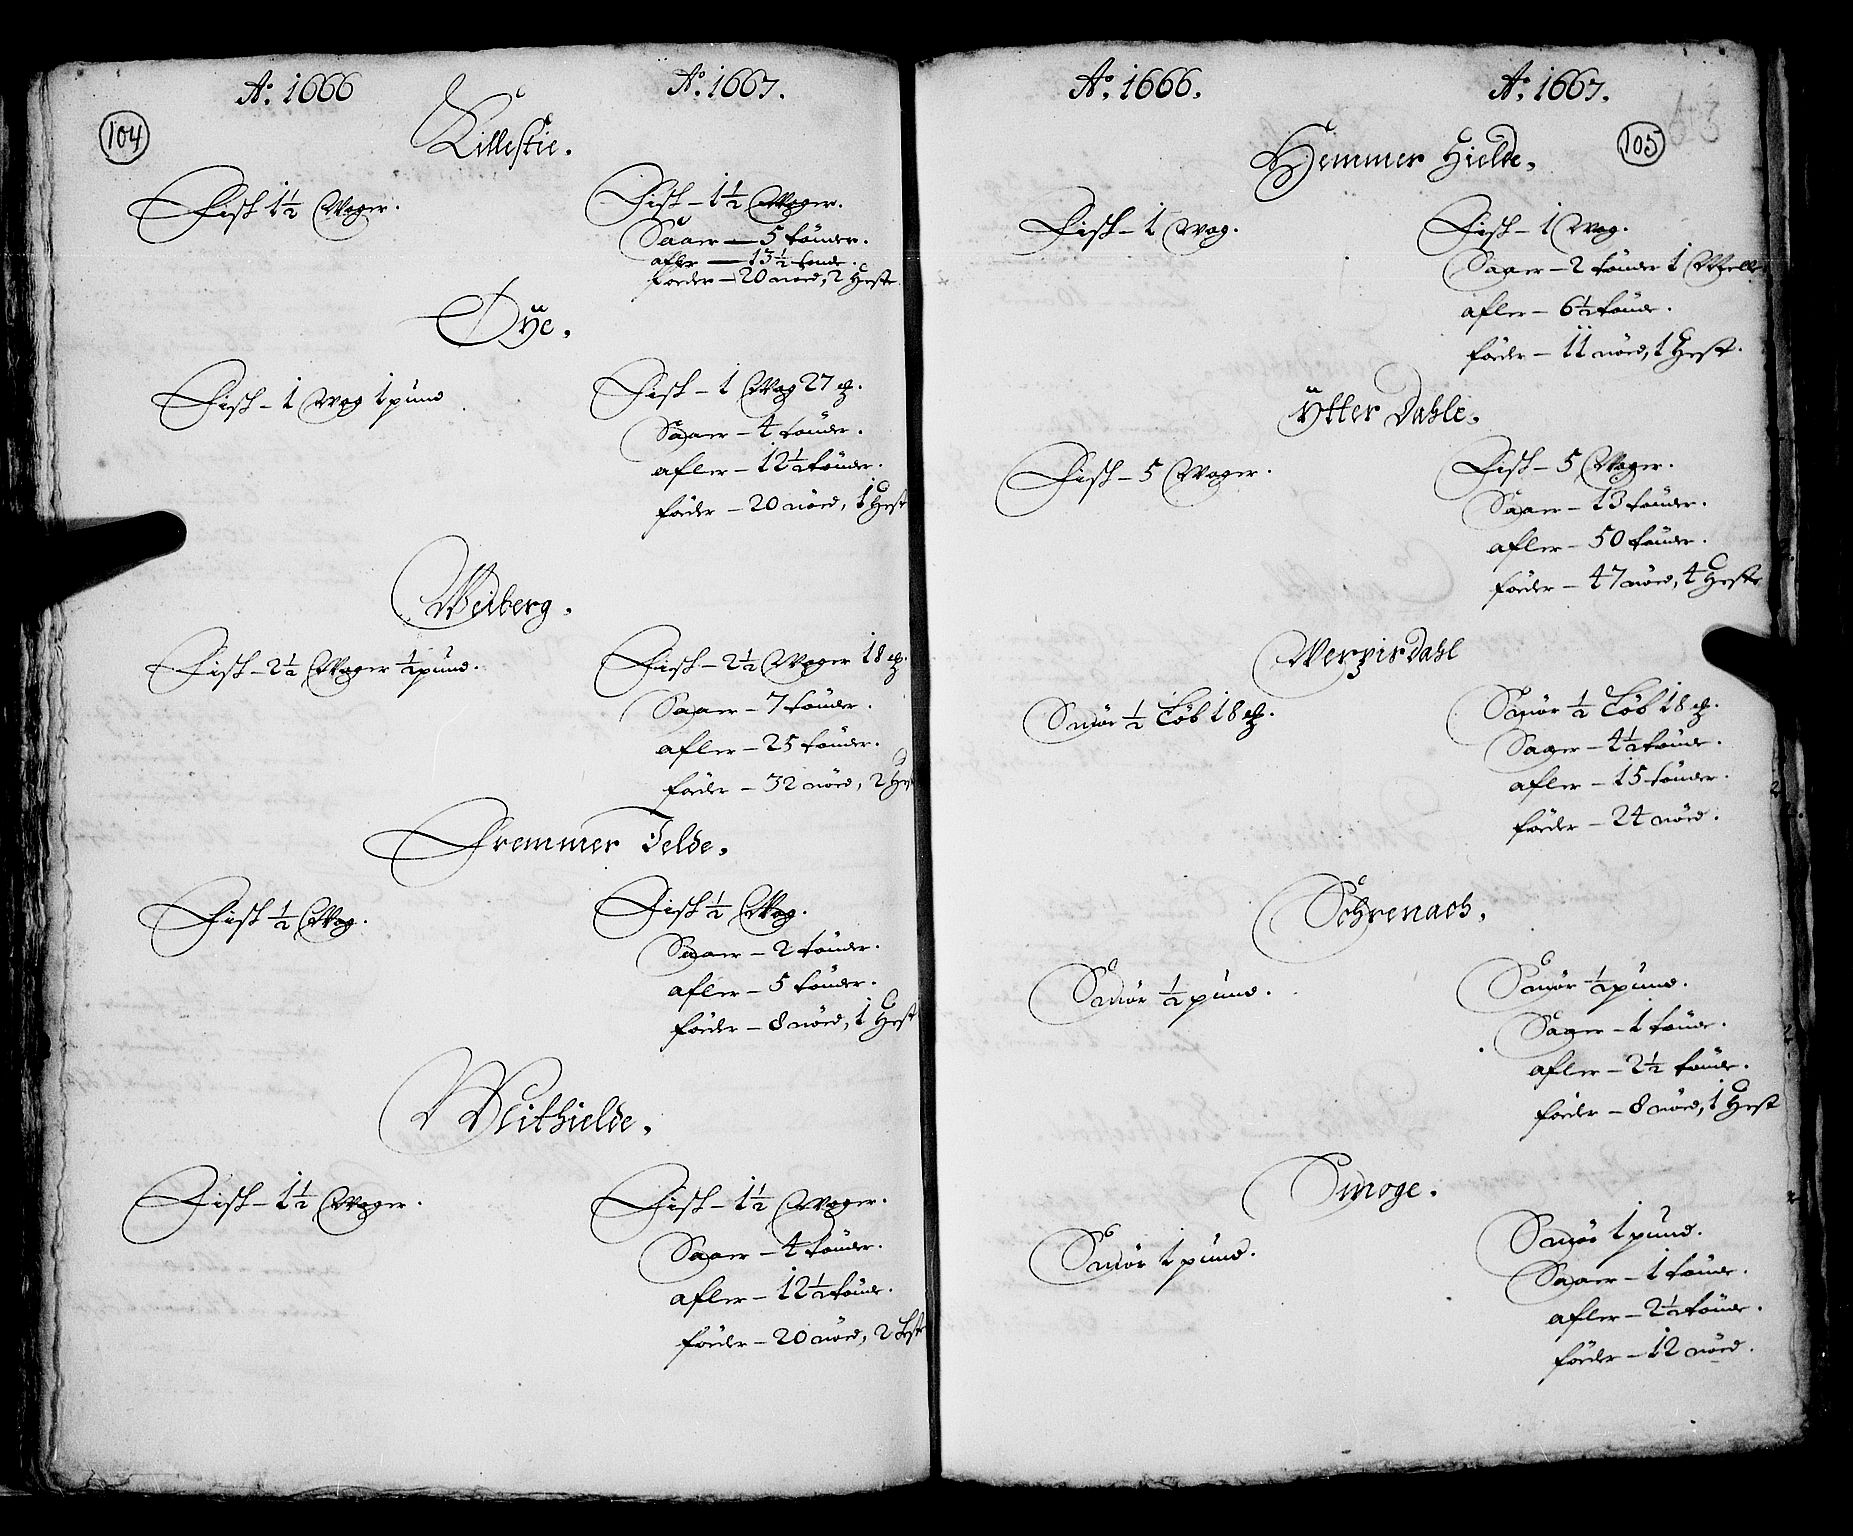 104
Ao. 1666 Ao. 1667.
Lillestie.
Fisk 1½ Woger. Fisk - 1½ Woger.
Saaer - 5 tönder.
afler - 13½ tönde.
föeder - 20 nöed, 2 Heste
Öÿe.
Fisk - 1 Wog 1 pund Fisk - 1 Wog 27 ℔.
Saaer - 4 tönder.
afler - 12½ tönder.
föeder - 20 nöed, 1 Hest
Weiberg.
Fisk - 2½ Woger ½ pund. Fisk - 2½ Woger 18 ℔.
Saaer - 7 tönder.
afler - 25 tönder.
föeder - 32 nöed, 2 Hes
Fremmer Jelde.
Fisk ½ Wog. Fisk ½ Wog.
Saaer - 2 tönder.
afler - 5 tönder.
föeder - 8 nöed, 1 Hest
Withielde.
Fisk - 1½ Woger. Fisk - 1½ Woger.
Saaer - 4 tönder.
afler - 12½ tönde.
föeder - 20 nöed, 2 Heste
105
Ao. 1666. Ao. 1667.
Hemmer Hielde.
Fisk - 1 Wog. Fisk - 1 Wog.
Saaer - 2 tönder 1 Melle
afler - 6½ tönde.
föeder - 11 nöed, 1 Hest.
Ÿtter Dahle.
Fisk - 5 Woger. Fisk - 5 Woger.
Saaer - 13 tönder.
afler - 50 tönder.
föeder - 47 nöed, 4 Heste
Werpisdahl
Smör ½ Löb 18 ℔. Smör ½ Löb 18 ℔.
Saaer - 4½ tönde.
afler - 15 tönder.
föeder - 24 nöed.
Schrenach.
Smör ½ pund. Smör ½ pund.
Saaer - 1 tönde.
afler - 2½ tönde.
föeder - 8 nöed, 1 Hest
Smoge.
Smör 1 pund. Smör 1 pund.
Saaer - 1 tönde.
afler - 2½ tönde.
föeder - 12 nöed.